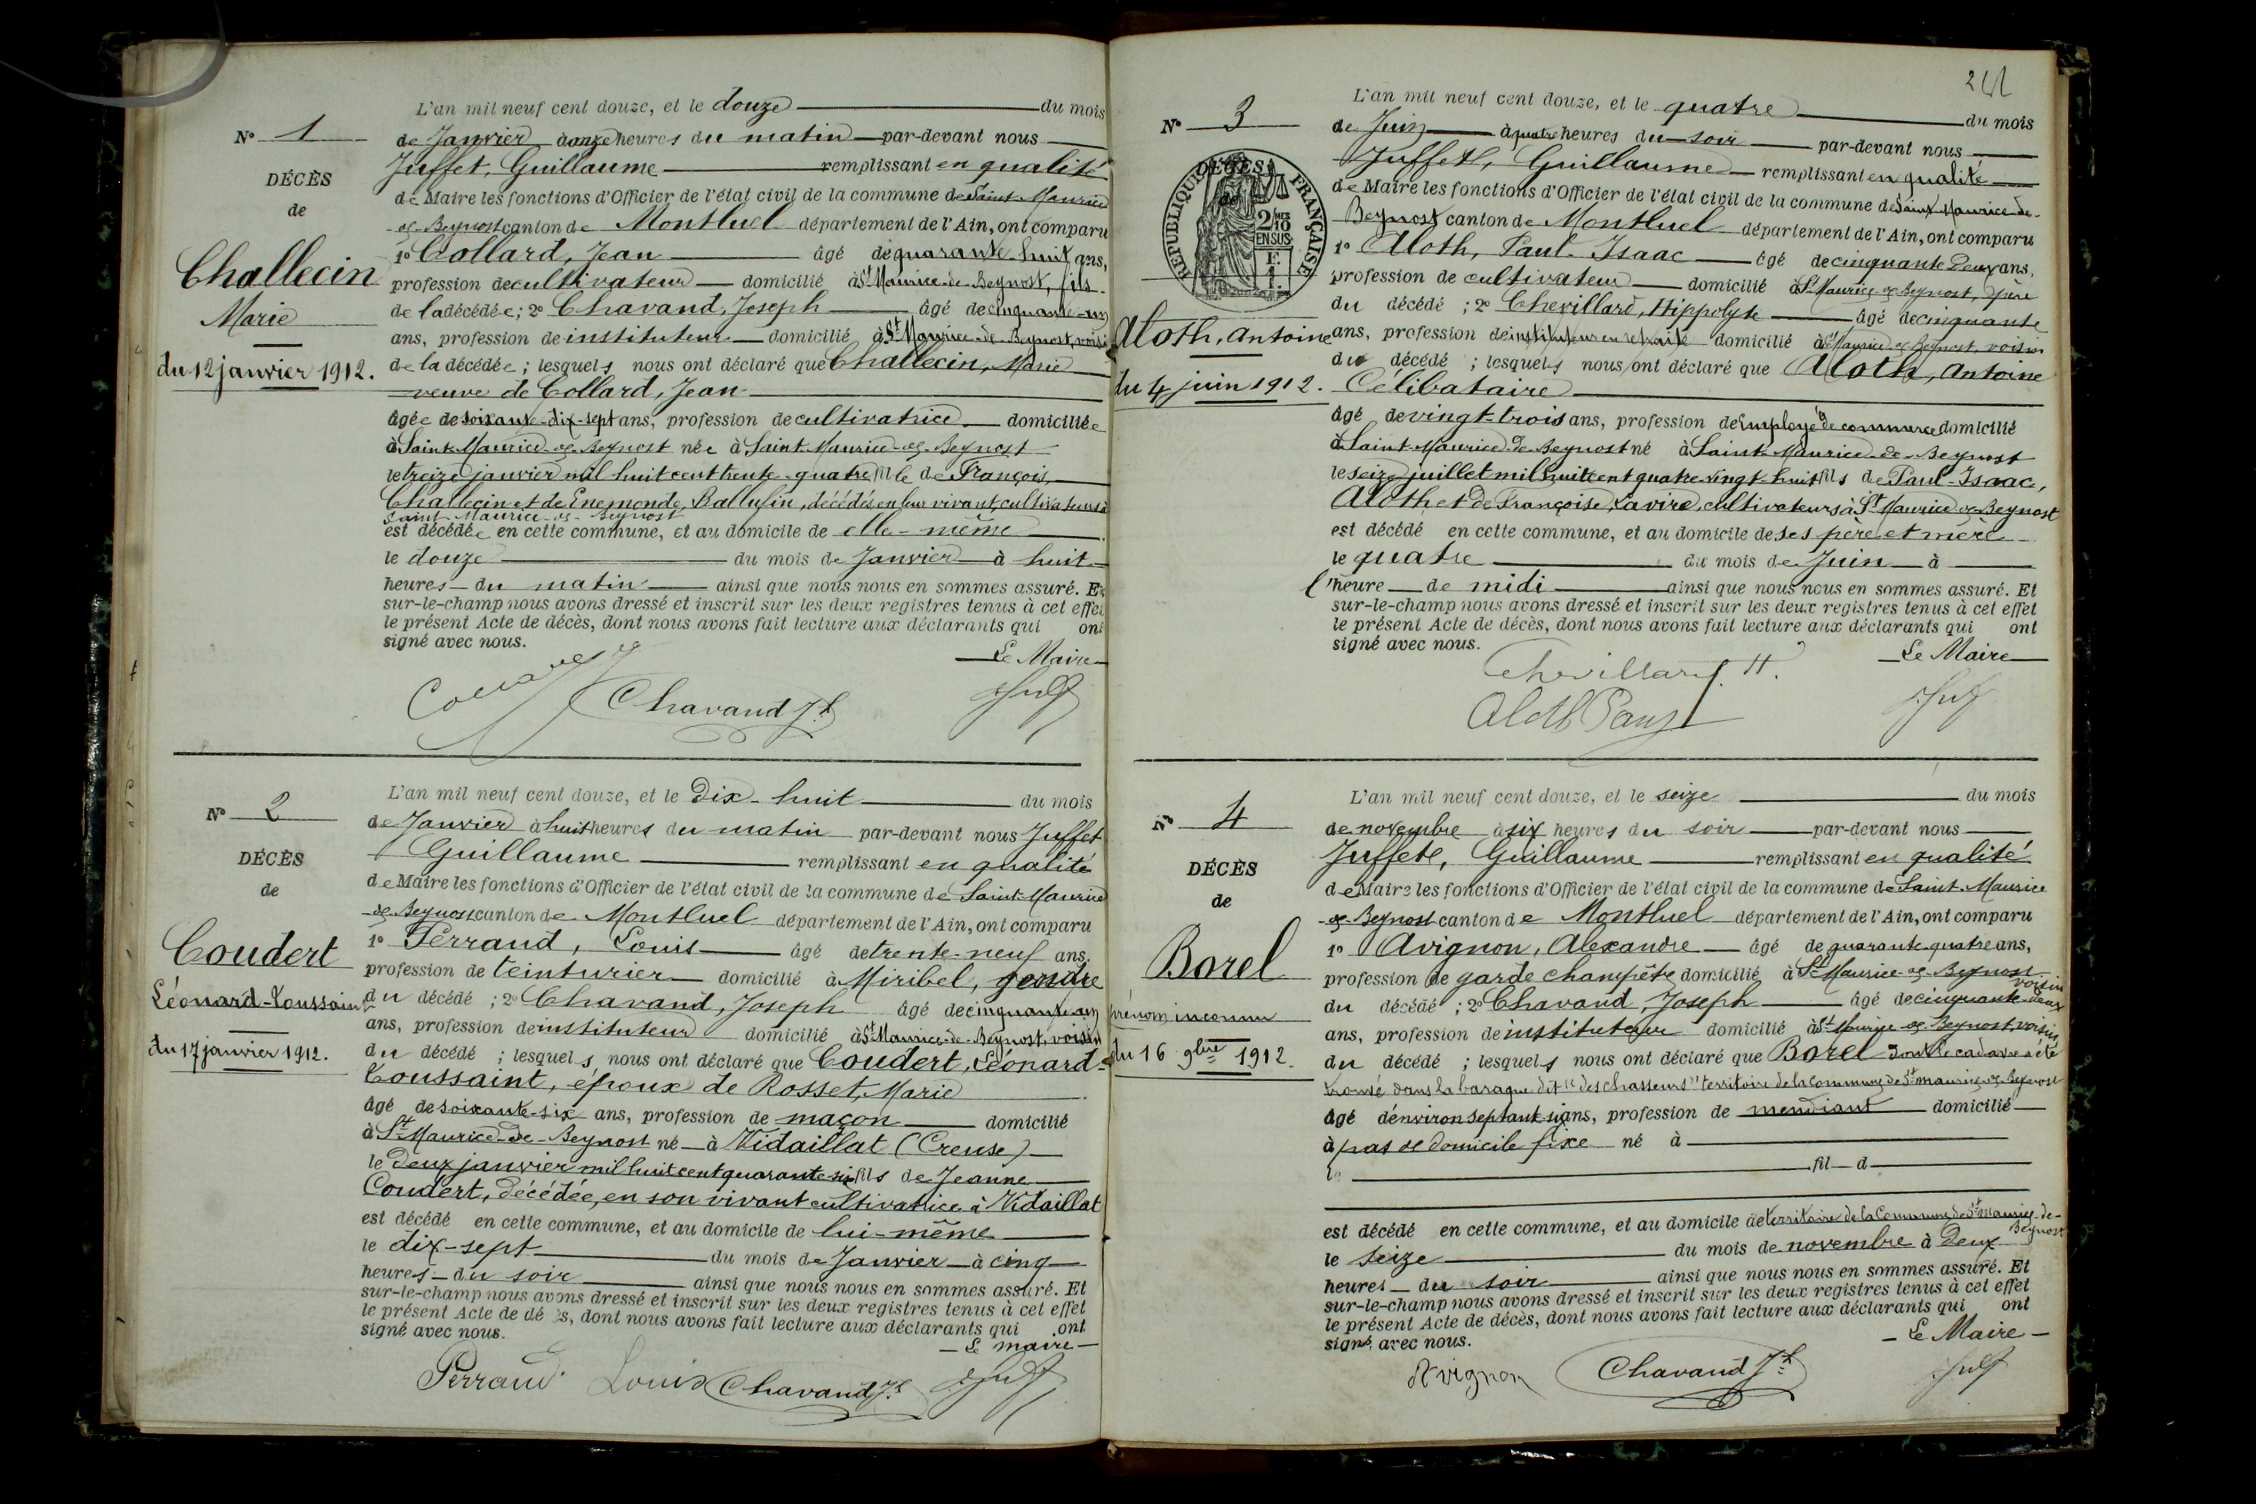 L'an mil neuf cent douze, et le douze du mois
N° 1
de Janvier à onze heures du matin par-devant nous
Juffet, Guillaume remplissant en qualité
DÉCÈS
de Maire les fonctions d'Officier de l'état civil de la commune de Saint-Maurice
de
de-Beynost canton de Montluel département de l'Ain, ont comparu
1° Collard, Jean âgé de quarante-huit ans,
Challecin
profession de cultivateur domicilié à St Maurice-de-Beynost, fils
Marie
de la décédée ; 2° Chavand, Joseph âgé de cinquante-un
ans, profession de instituteur domicilié à St Maurice-de-Beynost, voisin
du 12 janvier 1912.
de la décédée ; lesquels nous ont déclaré que Challecin, Marie
veuve de Collard, Jean
âgée de soixante-dix-sept ans, profession de cultivatrice domiciliée
à Saint-Maurice-de-Beynost née à Saint-Maurice-de-Beynost
le treize janvier mil huit cent trente-quatre fille de François,
Challecin et de Enemonde, Ballufin, décédés, en leur vivant, cultivateurs à
Saint-Maurice-de-Beynost
est décédée en cette commune, et au domicile de elle-même
le douze du mois de Janvier à huit
heures du matin ainsi que nous nous en sommes assuré. Et
sur-le-champ nous avons dressé et inscrit sur les deux registres tenus à cet effet
le présent Acte de décès, dont nous avons fait lecture aux déclarants qui ont
signé avec nous.
Le Maire
Chavand Jh
L'an mil neuf cent douze, et le Dix-huit du mois
N° 2
de Janvier à huit heures du matin par-devant nous Juffet
Guillaume remplissant en qualité
DÉCÈS
de Maire les fonctions d'Officier de l'état civil de la commune de Saint-Maurice
de
de-Beynost canton de Montluel département de l'Ain, ont comparu
1° Perraud, Louis âgé de trente-neuf ans,
Coudert
profession de teinturier domicilié à Miribel, gendre
Léonard-Toussaint
du décédé ; 2° Chavand, Joseph âgé de cinquante-un
ans, profession de instituteur domicilié à St Maurice-de-Beynost, voisin
du 17 janvier 1912.
du décédé ; lesquels nous ont déclaré que Coudert, Léonard-
Toussaint, époux de Rosset, Marie
âgé de soixante-six ans, profession de maçon domicilié
à St Maurice-de-Beynost né à Vidaillat (Creuse)
le deux janvier mil huit cent quarante-six fils de Jeanne
Coudert, décédée, en son vivant cultivatrice à Vidaillat
est décédé en cette commune, et au domicile de lui-même
le dix-sept du mois de Janvier à cinq
heures du soir ainsi que nous nous en sommes assuré. Et
sur-le-champ nous avons dressé et inscrit sur les deux registres tenus à cet effet
le présent Acte de décès, dont nous avons fait lecture aux déclarants qui ont
signé avec nous.
Le maire
Perraud Louis Chavand Jh
L'an mil neuf cent douze, et le quatre du mois
N° 3
de Juin à quatre heures du soir par-devant nous
Juffet, Guillaume remplissant en qualité
DÉCÈS
de
RÉPUBLIQUE FRANÇAISE
2/10 EN SUS
de Maire les fonctions d'Officier de l'état civil de la commune de Saint-Maurice-de-
Beynost canton de Montluel département de l'Ain, ont comparu
1° Aloth, Paul-Isaac âgé de cinquante Deux ans,
profession de cultivateur domicilié à St Maurice de Beynost, père
du décédé ; 2° Chevillard, Hippolyte âgé de cinquante
Aloth, Antoine
ans, profession de instituteur en retraite domicilié à St Maurice de Beynost, voisin
du décédé ; lesquels nous ont déclaré que Aloth, Antoine
du 4 juin 1912.
Célibataire
âgé de vingt-trois ans, profession de Employé de commerce domicilié
à Saint-Maurice de Beynost né à Saint-Maurice-de-Beynost
le seize juillet mil huit cent quatre-vingt-huit fils de Paul-Isaac,
Aloth et de Françoise, Lavire, cultivateurs à St Maurice de Beynost
est décédé en cette commune, et au domicile de ses père et mère
le quatre du mois de Juin à
l'heure de midi ainsi que nous nous en sommes assuré. Et
sur-le-champ nous avons dressé et inscrit sur les deux registres tenus à cet effet
le présent Acte de décès, dont nous avons fait lecture aux déclarants qui ont
signé avec nous.
Le Maire
Chevillard H.
Aloth Paul
L'an mil neuf cent douze, et le seize du mois
N° 4
de novembre à six heures du soir par-devant nous
Juffet, Guillaume remplissant en qualité
DÉCÈS
de Maire les fonctions d'Officier de l'état civil de la commune de Saint-Maurice
de
de-Beynost canton de Montluel département de l'Ain, ont comparu
1° Avignon, Alexandre âgé de quarante-quatre ans,
Borel
profession de garde champêtre domicilié à St Maurice-de-Beynost voisin
prénom inconnu
du décédé ; 2° Chavand, Joseph âgé de cinquante-deux
ans, profession de instituteur domicilié à St Maurice-de-Beynost, voisin
du 16 9bre 1912.
du décédé ; lesquels nous ont déclaré que Borel dont le cadavre a été
trouvé dans la baraque dit "des chasseurs" territoire de la commune de St Maurice de Beynost
âgé d'environ septante ans, profession de mendiant domicilié
à pas de domicile fixe né à
le fil d
est décédé en cette commune, et au domicile de territoire de la Commune de St Maurice-de-
Beynost
le seize du mois de novembre à Deux
heures du soir ainsi que nous nous en sommes assuré. Et
sur-le-champ nous avons dressé et inscrit sur les deux registres tenus à cet effet
le présent Acte de décès, dont nous avons fait lecture aux déclarants qui ont
signé avec nous.
Le Maire
Avignon Chavand Jh